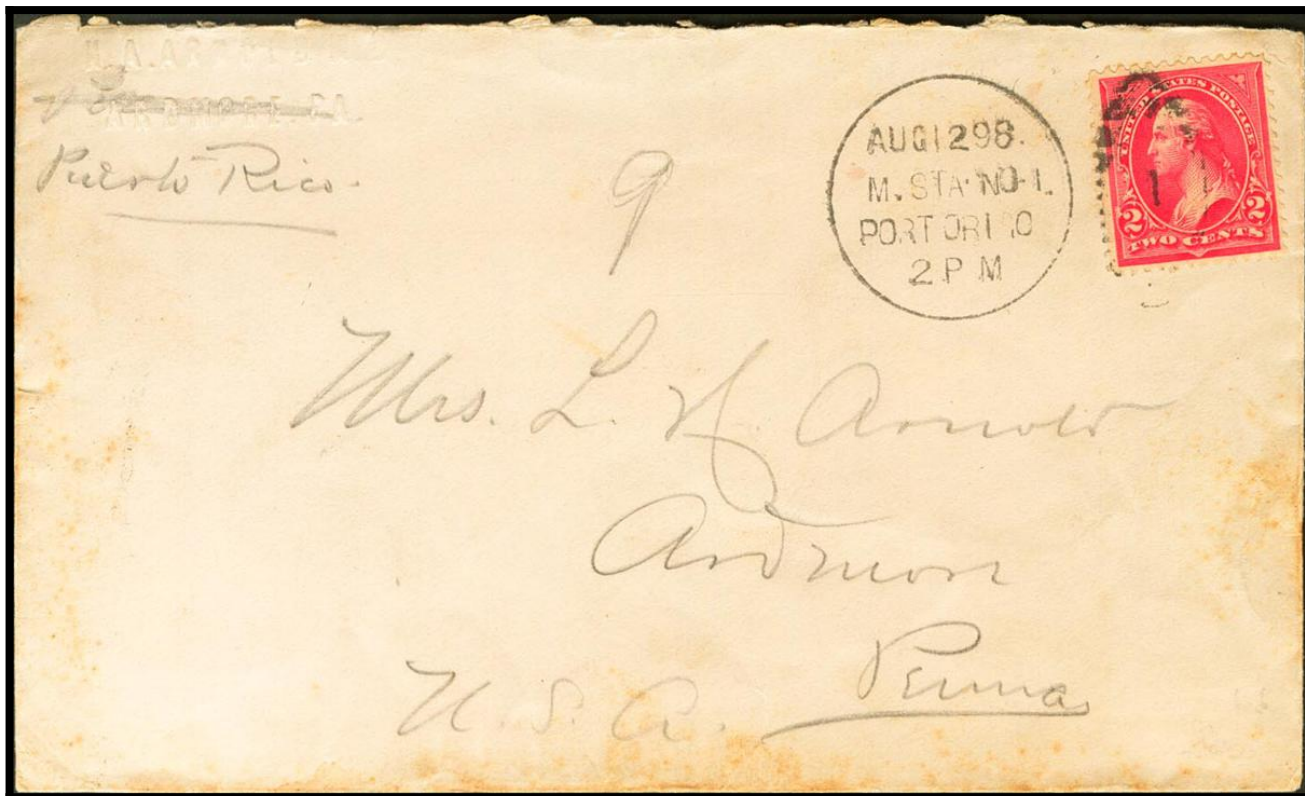 Puerto Rico.
9
AUG 12 98.
M. STA. NO-1.
PORTORICO
2 P M
UNITED STATES POSTAGE
2 2
TWO CENTS
Mrs. L. H. Arnold
Ardmore
Penna
U. S. A.